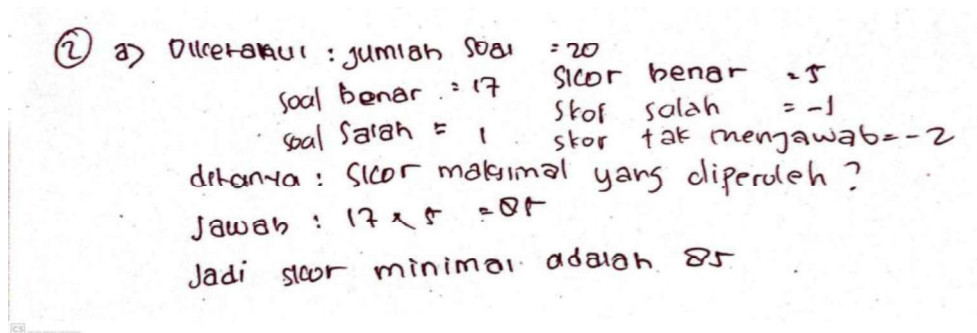 ② a) Diketahui : jumlah soal = 20
soal benar = 17 skor benar = 5
soal salah = 1 skor salah = -1
skor tak menjawab = -2
ditanya : skor maksimal yang diperoleh ?
Jawab : 17 x 5 = 85
Jadi skor minimal adalah 85
CS